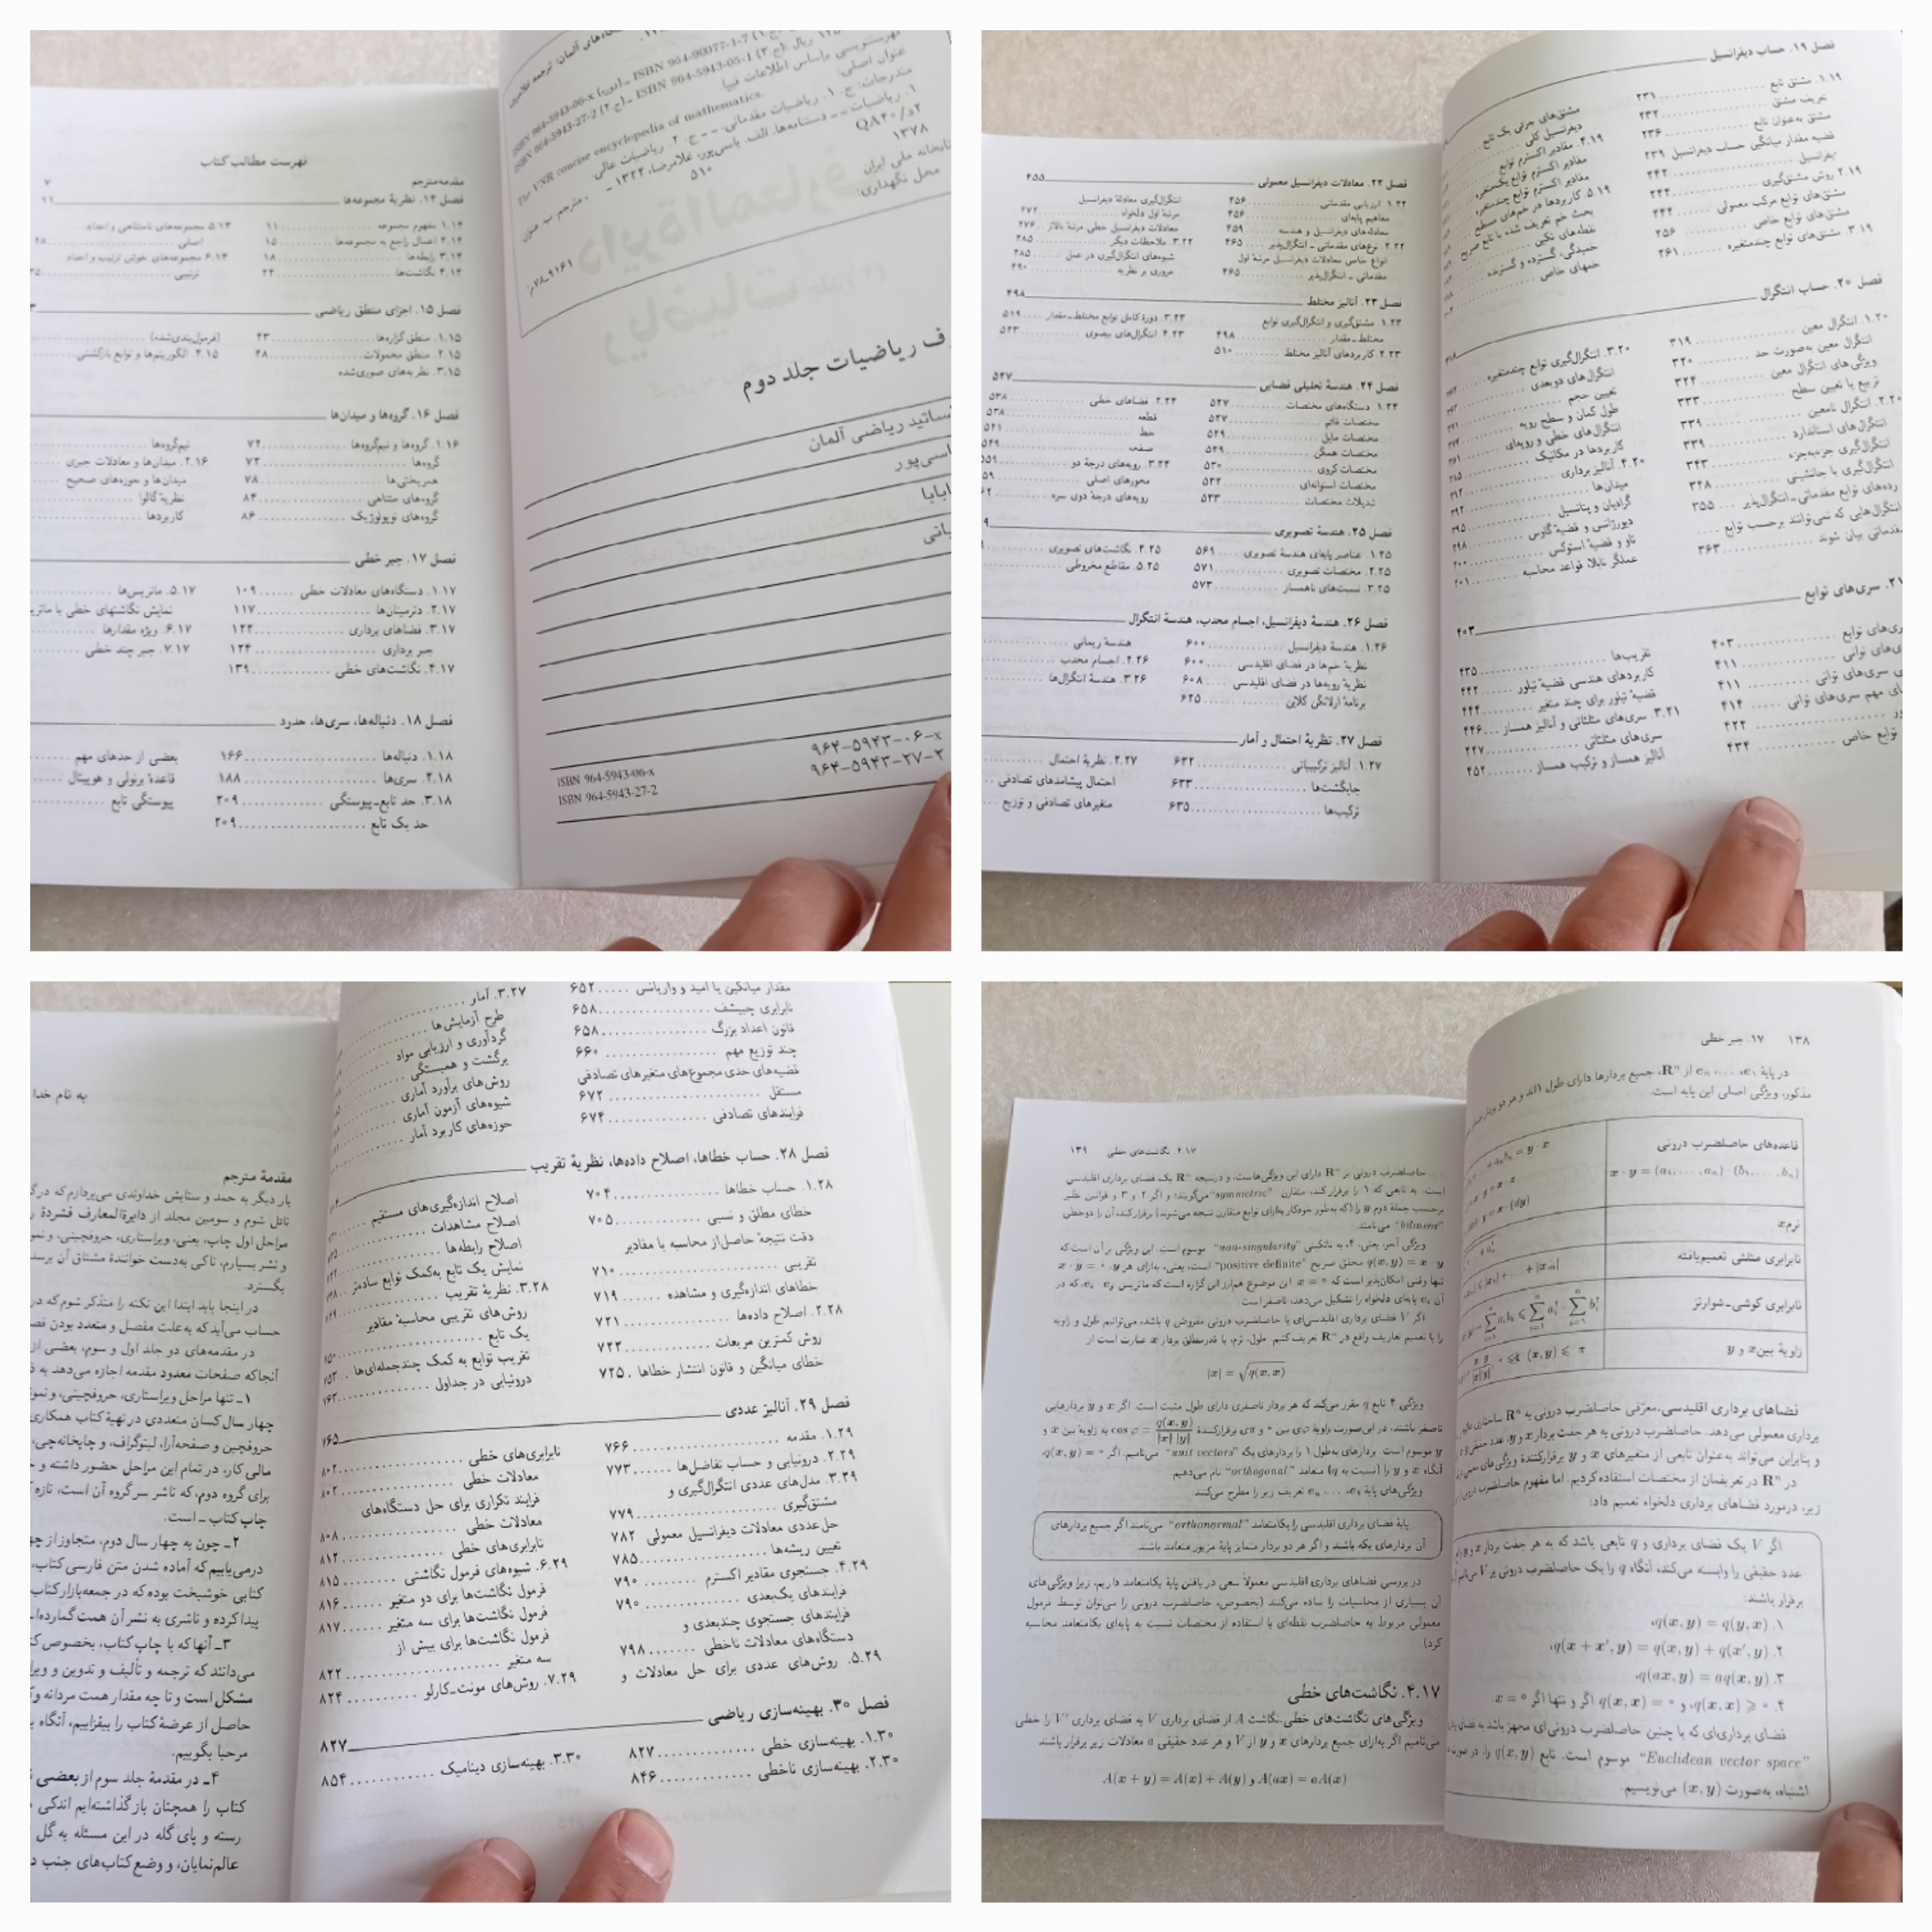 فهرست مطالب کتاب
مقدمه مترجم ۷
فصل ۱۴. نظریهٔ مجموعه‌ها ۱۱
۱.۱۴. مفهوم مجموعه ۱۱
۲.۱۴. اعمال راجع به مجموعه‌ها ۱۵
۳.۱۴. رابطه‌ها ۱۸
۴.۱۴. نگاشت‌ها ۲۴
۵.۱۴. مجموعه‌های نامتناهی و اعداد
اصلی ۲۸
۶.۱۴. مجموعه‌های خوش ترتیب و اعداد
ترتیبی
فصل ۱۵. اجزای منطق ریاضی
۱.۱۵. منطق گزاره‌ها ۴۳
۲.۱۵. منطق محمولات ۴۸
۳.۱۵. نظریه‌های صوری‌شده
(فرمول‌بندی‌شده)
۴.۱۵. الگوریتم‌ها و توابع بازگشتی
فصل ۱۶. گروه‌ها و میدان‌ها
۱.۱۶. گروه‌ها و نیم‌گروه‌ها ۷۲
گروه‌ها ۷۲
همریختی‌ها ۷۸
گروه‌های متناهی ۸۴
گروه‌های توپولوژیک ۸۶
نیم‌گروه‌ها
۲.۱۶. میدان‌ها و معادلات جبری
میدان‌ها و حوزه‌های صحیح
نظریهٔ گالوا
کاربردها
فصل ۱۷. جبر خطی
۱.۱۷. دستگاه‌های معادلات خطی ۱۰۹
۲.۱۷. دترمینان‌ها ۱۱۷
۳.۱۷. فضاهای برداری ۱۲۳
جبر برداری ۱۲۴
۴.۱۷. نگاشت‌های خطی ۱۳۹
۵.۱۷. ماتریس‌ها
نمایش نگاشتهای خطی با
۶.۱۷. ویژه مقدارها
۷.۱۷. جبر چند خطی
فصل ۱۸. دنباله‌ها، سری‌ها، حدود
۱.۱۸. دنباله‌ها ۱۶۶
۲.۱۸. سری‌ها ۱۸۸
۳.۱۸. حد تابع-پیوستگی ۲۰۹
حد یک تابع ۲۰۹
بعضی از حدهای مهم
قاعدهٔ برنولی و هوپیتال
پیوستگی تابع
ISBN 964-90077-1-7
ISBN 964-5943-06-x (دوره) ISBN 964-5943-05-1
ISBN 964-5943-27-2
فهرستنویسی براساس اطلاعات فیپا.
عنوان اصلی:
The VNR concise encyclopedia of mathematics.
مندرجات: ج. ۱. ریاضیات مقدماتی. -- ج. ۲. ریاضیات عالی
۱. ریاضیات -- دستنامه‌ها. الف. یاسی‌پور، غلامرضا، ۱۳۲۲ - ، مترجم. ب. عنوان
QA۴۰/د۲
۱۳۷۸ ۵۱۰
ملی ایران
محل نگهداری: ۷۸-۹۱۶۱م
ریاضیات جلد دوم
ریاضی آلمان
۹۶۴-۵۹۴۳-۰۶-x
۹۶۴-۵۹۴۳-۲۷-۲
ISBN 964-5943-06-x
ISBN 964-5943-27-2
فصل ۱۹. حساب دیفرانسیل
۱.۱۹. مشتق تابع ۲۳۱
تعریف مشتق ۲۳۲
مشتق به‌عنوان تابع ۲۳۶
قضیه مقدار میانگی حساب دیفرانسیل ۲۳۹
دیفرانسیل ۲۴۲
۲.۱۹. روش مشتق‌گیری ۲۴۴
مشتق‌های توابع مرکب معمولی ۲۴۴
مشتق‌های توابع خاص ۲۵۶
۳.۱۹. مشتق‌های توابع چندمتغیره ۲۶۱
مشتق‌های جزئی یک تابع
دیفرانسیل کلی
۴.۱۹. مقادیر اکسترم توابع
مقادیر اکسترم توابع یک‌متغیره
مقادیر اکسترم توابع چندمتغیره
۵.۱۹. کاربردها در خم‌های مسطح
بحث خم تعریف شده با تابع صریح
نقطه‌های تکین
خمیدگی، گسترده و گسترنده
خمهای خاص
فصل ۲۰. حساب انتگرال
۱.۲۰. انتگرال معین ۳۱۹
انتگرال معین به‌صورت حد ۳۲۰
ویژگی‌های انتگرال معین ۳۲۴
تربیع یا تعیین سطح ۳۳۳
۲.۲۰. انتگرال نامعین ۳۳۹
انتگرال‌های استاندارد ۳۳۹
انتگرال‌گیری جزءبه‌جزء ۳۴۳
انتگرال‌گیری با جانشینی ۳۴۸
رده‌های توابع مقدماتی-انتگرال‌پذیر ۳۵۵
انتگرال‌هایی که نمی‌توانند برحسب توابع
مقدماتی بیان شوند ۳۶۳
۳.۲۰. انتگرال‌گیری توابع چندمتغیره
انتگرال‌های دوبعدی
تعیین حجم
طول کمان و سطح رویه
انتگرال‌های خطی و رویه‌ای
کاربردها در مکانیک
۴.۲۰. آنالیز برداری
میدان‌ها
گرادیان و پتانسیل
دیورژانس و قضیهٔ گاوس
تاو و قضیهٔ استوکس
عملگر نابلا؛ قواعد محاسبه ۴۰۱
سری‌های توابع ۴۰۳
تقریب‌ها ۴۳۵
کاربردهای هندسی قضیهٔ تیلور ۴۴۲
قضیهٔ تیلور برای چند متغیر ۴۴۴
۳.۲۱. سری‌های مثلثاتی و آنالیز همساز ۴۴۶
سری‌های مثلثاتی ۴۴۷
آنالیز همساز و ترکیب همساز ۴۵۲
فصل ۲۲. معادلات دیفرانسیل معمولی ۴۵۵
۱.۲۲. ارزیابی مقدماتی ۴۵۶
مفاهیم پایه‌ای ۴۵۶
معادله‌های دیفرانسیل و هندسه ۴۵۹
۲.۲۲. نوع‌های مقدماتی - انتگرال‌پذیر ۴۶۵
انواع خاص معادلات دیفرانسیل مرتبهٔ اول
مقدماتی - انتگرال‌پذیر ۴۶۵
انتگرال‌گیری معادلهٔ دیفرانسیل
مرتبهٔ اول دلخواه ۴۷۲
معادلات دیفرانسیل خطی مرتبهٔ بالاتر ۴۷۶
۳.۲۲. ملاحظات دیگر ۴۸۵
شیوه‌های انتگرال‌گیری در عمل ۴۸۵
مروری بر نظریه ۴۹۰
فصل ۲۳. آنالیز مختلط ۴۹۸
۱.۲۳. مشتق‌گیری و انتگرال‌گیری توابع
مختلط-مقدار ۴۹۸
۲.۲۳. کاربردهای آنالیز مختلط ۵۱۰
۳.۲۳. دورهٔ کامل توابع مختلط-مقدار ۵۱۹
۴.۲۳. انتگرال‌های بیضوی ۵۲۳
فصل ۲۴. هندسهٔ تحلیلی فضایی ۵۲۷
۱.۲۴. دستگاه‌های مختصات ۵۲۷
مختصات قائم ۵۲۷
مختصات مایل ۵۲۹
مختصات همگن ۵۲۹
مختصات کروی ۵۳۰
مختصات استوانه‌ای ۵۳۲
تبدیلات مختصات ۵۳۳
۲.۲۴. فضاهای خطی ۵۳۸
قطعه ۵۳۸
خط ۵۴۱
صفحه ۵۴۹
۳.۲۴. رویه‌های درجهٔ دو
محورهای اصلی
رویه‌های درجهٔ دوی سره
فصل ۲۵. هندسهٔ تصویری
۱.۲۵. عناصر پایه‌ای هندسهٔ تصویری ۵۶۹
۲.۲۵. مختصات تصویری ۵۷۱
۳.۲۵. نسبت‌های ناهمساز ۵۷۳
۴.۲۵. نگاشت‌های تصویری
۵.۲۵. مقاطع مخروطی
فصل ۲۶. هندسهٔ دیفرانسیل، اجسام محدب، هندسهٔ انتگرال
۱.۲۶. هندسهٔ دیفرانسیل ۶۰۰
نظریهٔ خم‌ها در فضای اقلیدسی ۶۰۰
نظریهٔ رویه‌ها در فضای اقلیدسی ۶۰۸
برنامهٔ ارلانگن کلاین ۶۲۵
هندسهٔ ریمانی
۲.۲۶. اجسام محدب
۳.۲۶. هندسهٔ انتگرال‌ها
فصل ۲۷. نظریهٔ احتمال و آمار
۱.۲۷. آنالیز ترکیبیاتی ۶۳۲
جایگشت‌ها ۶۳۳
ترکیب‌ها ۶۳۵
۲.۲۷. نظریهٔ احتمال
احتمال پیشامدهای تصادفی
متغیرهای تصادفی و توزیع
مقدار میانگین یا امید و واریانس ۶۵۲
نابرابری چبیشف ۶۵۸
قانون اعداد بزرگ ۶۵۸
چند توزیع مهم ۶۶۰
قضیه‌های حدی مجموع‌های متغیرهای تصادفی
مستقل ۶۷۲
فرایندهای تصادفی ۶۷۴
۳.۲۷. آمار
طرح آزمایش‌ها
گردآوری و ارزیابی مواد
برگشت و همبستگی
روش‌های برآورد آماری
شیوه‌های آزمون آماری
حوزه‌های کاربرد آمار
فصل ۲۸. حساب خطاها، اصلاح داده‌ها، نظریهٔ تقریب
۱.۲۸. حساب خطاها ۷۰۴
خطای مطلق و نسبی ۷۰۵
دقت نتیجهٔ حاصل‌از محاسبه با مقادیر
تقریبی ۷۱۰
خطاهای اندازه‌گیری و مشاهده ۷۱۹
۲.۲۸. اصلاح داده‌ها ۷۲۱
روش کمترین مربعات ۷۲۳
خطای میانگین و قانون انتشار خطاها ۷۲۵
اصلاح اندازه‌گیری‌های مستقیم
اصلاح مشاهدات
اصلاح رابطه‌ها
نمایش یک تابع به‌کمک توابع ساده‌تر
۳.۲۸. نظریهٔ تقریب
روش‌های تقریبی محاسبهٔ مقادیر
یک تابع
تقریب توابع به کمک چندجمله‌ای‌ها ۷۵۳
درونیابی در جداول ۷۶۳
فصل ۲۹. آنالیز عددی ۷۶۵
۱.۲۹. مقدمه ۷۶۶
۲.۲۹. درونیابی و حساب تفاضل‌ها ۷۷۳
۳.۲۹. مدل‌های عددی انتگرال‌گیری و
مشتق‌گیری ۷۷۹
حل عددی معادلات دیفرانسیل معمولی ۷۸۲
تعیین ریشه‌ها ۷۸۵
۴.۲۹. جستجوی مقادیر اکسترم ۷۹۰
فرایندهای یک‌بعدی ۷۹۰
فرایندهای جستجوی چندبعدی و
دستگاه‌های معادلات ناخطی ۷۹۸
۵.۲۹. روش‌های عددی برای حل معادلات و
نابرابری‌های خطی ۸۰۲
معادلات خطی ۸۰۲
فرایند تکراری برای حل دستگاه‌های
معادلات خطی ۸۰۸
نابرابری‌های خطی ۸۱۲
۶.۲۹. شیوه‌های فرمول نگاشتی ۸۱۵
فرمول نگاشت‌ها برای دو متغیر ۸۱۶
فرمول نگاشت‌ها برای سه متغیر ۸۱۷
فرمول نگاشت‌ها برای بیش از
سه متغیر ۸۲۲
۷.۲۹. روش‌های مونت-کارلو ۸۲۴
فصل ۳۰. بهینه‌سازی ریاضی ۸۲۷
۱.۳۰. بهینه‌سازی خطی ۸۲۷
۲.۳۰. بهینه‌سازی ناخطی ۸۴۶
۳.۳۰. بهینه‌سازی دینامیک ۸۵۴
به نام خدا
مقدمهٔ مترجم
بار دیگر به حمد و ستایش خداوندی می‌پردازم که
نائل شوم و سومین مجلد از دایرةالمعارف فشردهٔ
مراحل اول چاپ، یعنی، ویراستاری، حروفچینی،
و نشر بسپارم، تاکی به‌دست خوانندهٔ مشتاق آن برسد
بگسترد.
در اینجا باید ابتدا این نکته را متذکر شوم که در
حساب می‌آید که به‌علت مفصل و متعدد بودن
در مقدمه‌های دو جلد اول و سوم، بعضی از
آنجاکه صفحات معدود مقدمه اجازه می‌دهد به
۱- تنها مراحل ویراستاری، حروفچینی، و
چهار سال کسان متعددی در تهیهٔ کتاب همکاری
حروفچین و صفحه‌آرا، لیتوگراف، و چاپخانه‌چی،
مالی کار، در تمام این مراحل حضور داشته و
برای گروه دوم، که ناشر سرگروه آن است، تازه
چاپ کتاب - است.
۲- چون به چهار سال دوم، متجاوز از
درمی‌یابیم که آماده شدن متن فارسی کتاب،
کتابی خوشبخت بوده که در جمعه‌بازار کتاب
پیدا کرده و ناشری به نشر آن همت گمارده
۳- آنها که با چاپ کتاب، بخصوص
می‌دانند که ترجمه و تألیف و تدوین و
مشکل است و تا چه مقدار همت مردانه
حاصل از عرضهٔ کتاب را بیفزاییم، آنگاه
مرحبا بگوییم.
۴- در مقدمهٔ جلد سوم از بعضی
کتاب را همچنان بازگذاشته‌ایم اندکی
رسته و پای گله در این مسئله به گل
عالم‌نمایان، و وضع کتاب‌های جنب
۱۳۸ ۱۷. جبر خطی
در پایهٔ e₁، ...، eₙ از Rⁿ، جمیع بردارها دارای طول ۱اند و هر دو بردار
مذکور، ویژگی اصلی این پایه است.
قاعده‌های حاصلضرب درونی
x · y = (a₁, ..., aₙ) · (b₁, ..., bₙ)
نرم x
نابرابری مثلثی تعمیم‌یافته
نابرابری کوشی-شوارتز
زاویهٔ بین x و y
فضاهای برداری اقلیدسی. معرفی حاصلضرب درونی به Rⁿ ساختاری
برداری معمولی می‌دهد. حاصلضرب درونی به هر جفت بردار x و y، عدد حقیقی
و بنابراین می‌تواند به‌عنوان تابعی از متغیرهای x و y برقرارکنندهٔ ویژگی‌های معین
در Rⁿ در تعریفمان از مختصات استفاده کردیم. اما مفهوم حاصلضرب درونی
زیر، درمورد فضاهای برداری دلخواه تعمیم داد:
اگر V یک فضای برداری و q تابعی باشد که به هر جفت بردار x و y
عدد حقیقی را وابسته می‌کند، آنگاه q را یک حاصلضرب درونی بر V می‌نامیم
برقرار باشند:
۱. q(x, y) = q(y, x)،
۲. q(x + x′, y) = q(x, y) + q(x′, y)،
۳. q(ax, y) = aq(x, y)،
۴. q(x, x) ⩾ ۰، و q(x, x) = ۰ اگر و تنها اگر x = ۰.
فضای برداری‌ای که با چنین حاصلضرب درونی‌ای مجهز باشد به فضای
"Euclidean vector space" موسوم است. تابع q(x, y) را، در صورت
اشتباه، به‌صورت (x, y) می‌نویسیم.
۴.۱۷. نگاشت‌های خطی ۱۳۹
حاصلضرب درونی بر Rⁿ دارای این ویژگی‌هاست، و درنتیجه Rⁿ یک فضای برداری اقلیدسی
است. به تابعی که ۱ را برقرار کند، متقارن "symmetric" می‌گویند؛ و اگر ۲ و ۳ و قوانین نظیر
برحسب جملهٔ دوم y را (که به‌طور خودکار به‌ازای توابع متقارن نتیجه می‌شوند) برقرار کند، آن را دوخطی
"bilinear" می‌نامند.
ویژگی آخر، یعنی، ۴، به ناتکینی "non-singularity" موسوم است. این ویژگی بر آن است که
q(x, y) = x · y محقق صریح "positive definite" است، یعنی، به‌ازای هر y، x · y = ۰
تنها وقتی امکان‌پذیر است که x = ۰. این موضوع هم‌ارز این گزاره است که ماتریس eᵢ · eⱼ، که در
آن eᵢ پایه‌ای دلخواه را تشکیل می‌دهد، ناصفر است.
اگر V فضای برداری اقلیدسی‌ای با حاصلضرب درونی مفروض q باشد، می‌توانیم طول و زاویه
را با تعمیم تعاریف واقع در Rⁿ تعریف کنیم. طول، نرم، یا قدرمطلق بردار x عبارت است از
|x| = √q(x, x)
ویژگی ۴ تابع q مقرر می‌کند که هر بردار ناصفری دارای طول مثبت است. اگر x و y بردارهایی
ناصفر باشند، در این‌صورت زاویهٔ φی بین ۰ و πی برقرارکنندهٔ cos φ = q(x, y) / |x| |y| به زاویهٔ بین x و
y موسوم است. بردارهای به‌طول ۱ را بردارهای یکه "unit vectors" می‌نامیم. اگر q(x, y) = ۰،
آنگاه x و y را (نسبت به q) متعامد "orthogonal" نام می‌دهیم.
ویژگی‌های پایهٔ e₁، ...، eₙ تعریف زیر را مطرح می‌کنند:
پایهٔ فضای برداری اقلیدسی را یکامتعامد "orthonormal" می‌نامند اگر جمیع بردارهای
آن بردارهای یکه باشند و اگر هر دو بردار متمایز پایهٔ مزبور متعامد باشند.
در بررسی فضاهای برداری اقلیدسی معمولاً سعی در یافتن پایهٔ یکامتعامد داریم، زیرا ویژگی‌های
آن بسیاری از محاسبات را ساده می‌کنند (بخصوص، حاصلضرب درونی را می‌توان توسط فرمول
معمولی مربوط به حاصلضرب نقطه‌ای با استفاده از مختصات نسبت به پایه‌ای یکامتعامد محاسبه
کرد).
۴.۱۷. نگاشت‌های خطی
ویژگی‌های نگاشت‌های خطی. نگاشت A از فضای برداری V به فضای برداری V′ را خطی
می‌نامیم اگر به‌ازای جمیع بردارهای x و y از V و هر عدد حقیقی a معادلات زیر برقرار باشند
A(x + y) = A(x) + A(y) و A(ax) = aA(x)